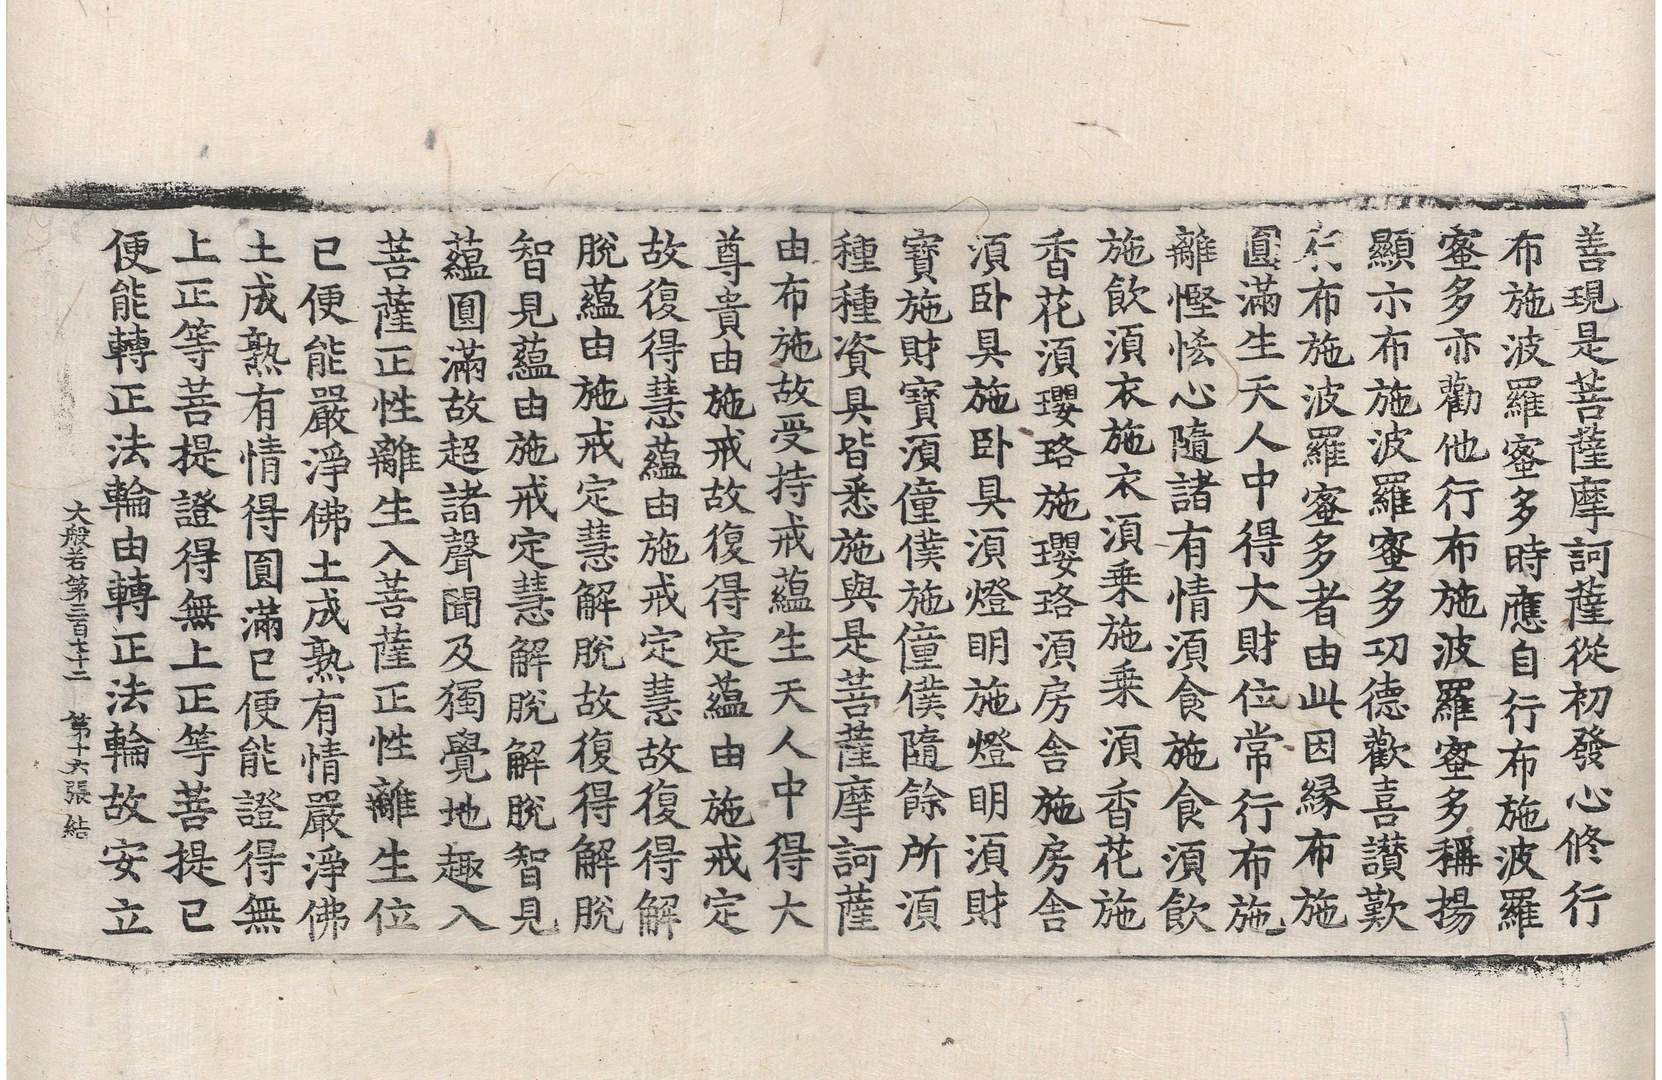 善現是菩薩摩訶薩從初發心修行
布施波羅蜜多時應自行布施波羅
蜜多亦勸他行布施波羅蜜多稱揚
顯示布施波羅蜜多功德歡喜讃歎
行布施波羅蜜多者由此因縁布施
圓滿生天人中得大財位常行布施
離慳悋心隨諸有情須食施食須飲
施飲須衣施衣須乗施乗須香花施
香花須瓔珞施瓔珞須房舍施房舍
須卧具施卧具須燈明施燈明須財
寶施財寶須僮僕施僮僕隨餘所須
種種資具皆悉施與是菩薩摩訶薩
由布施故受持戒蘊生天人中得大
尊貴由施戒故復得定蘊由施戒定
故復得慧蘊由施戒定慧故復得解
脫蘊由施戒定慧解脫故復得解脫
智見蘊由施戒定慧解脫解脫智見
蘊圓滿故超諸聲聞及獨覺地趣入
菩薩正性離生入菩薩正性離生位
已便能嚴淨佛土成熟有情嚴淨佛
土成熟有情得圓滿已便能證得無
上正等菩提證得無上正等菩提已
便能轉正法輪由轉正法輪故安立
大般若第三百七十二 第十六張 結